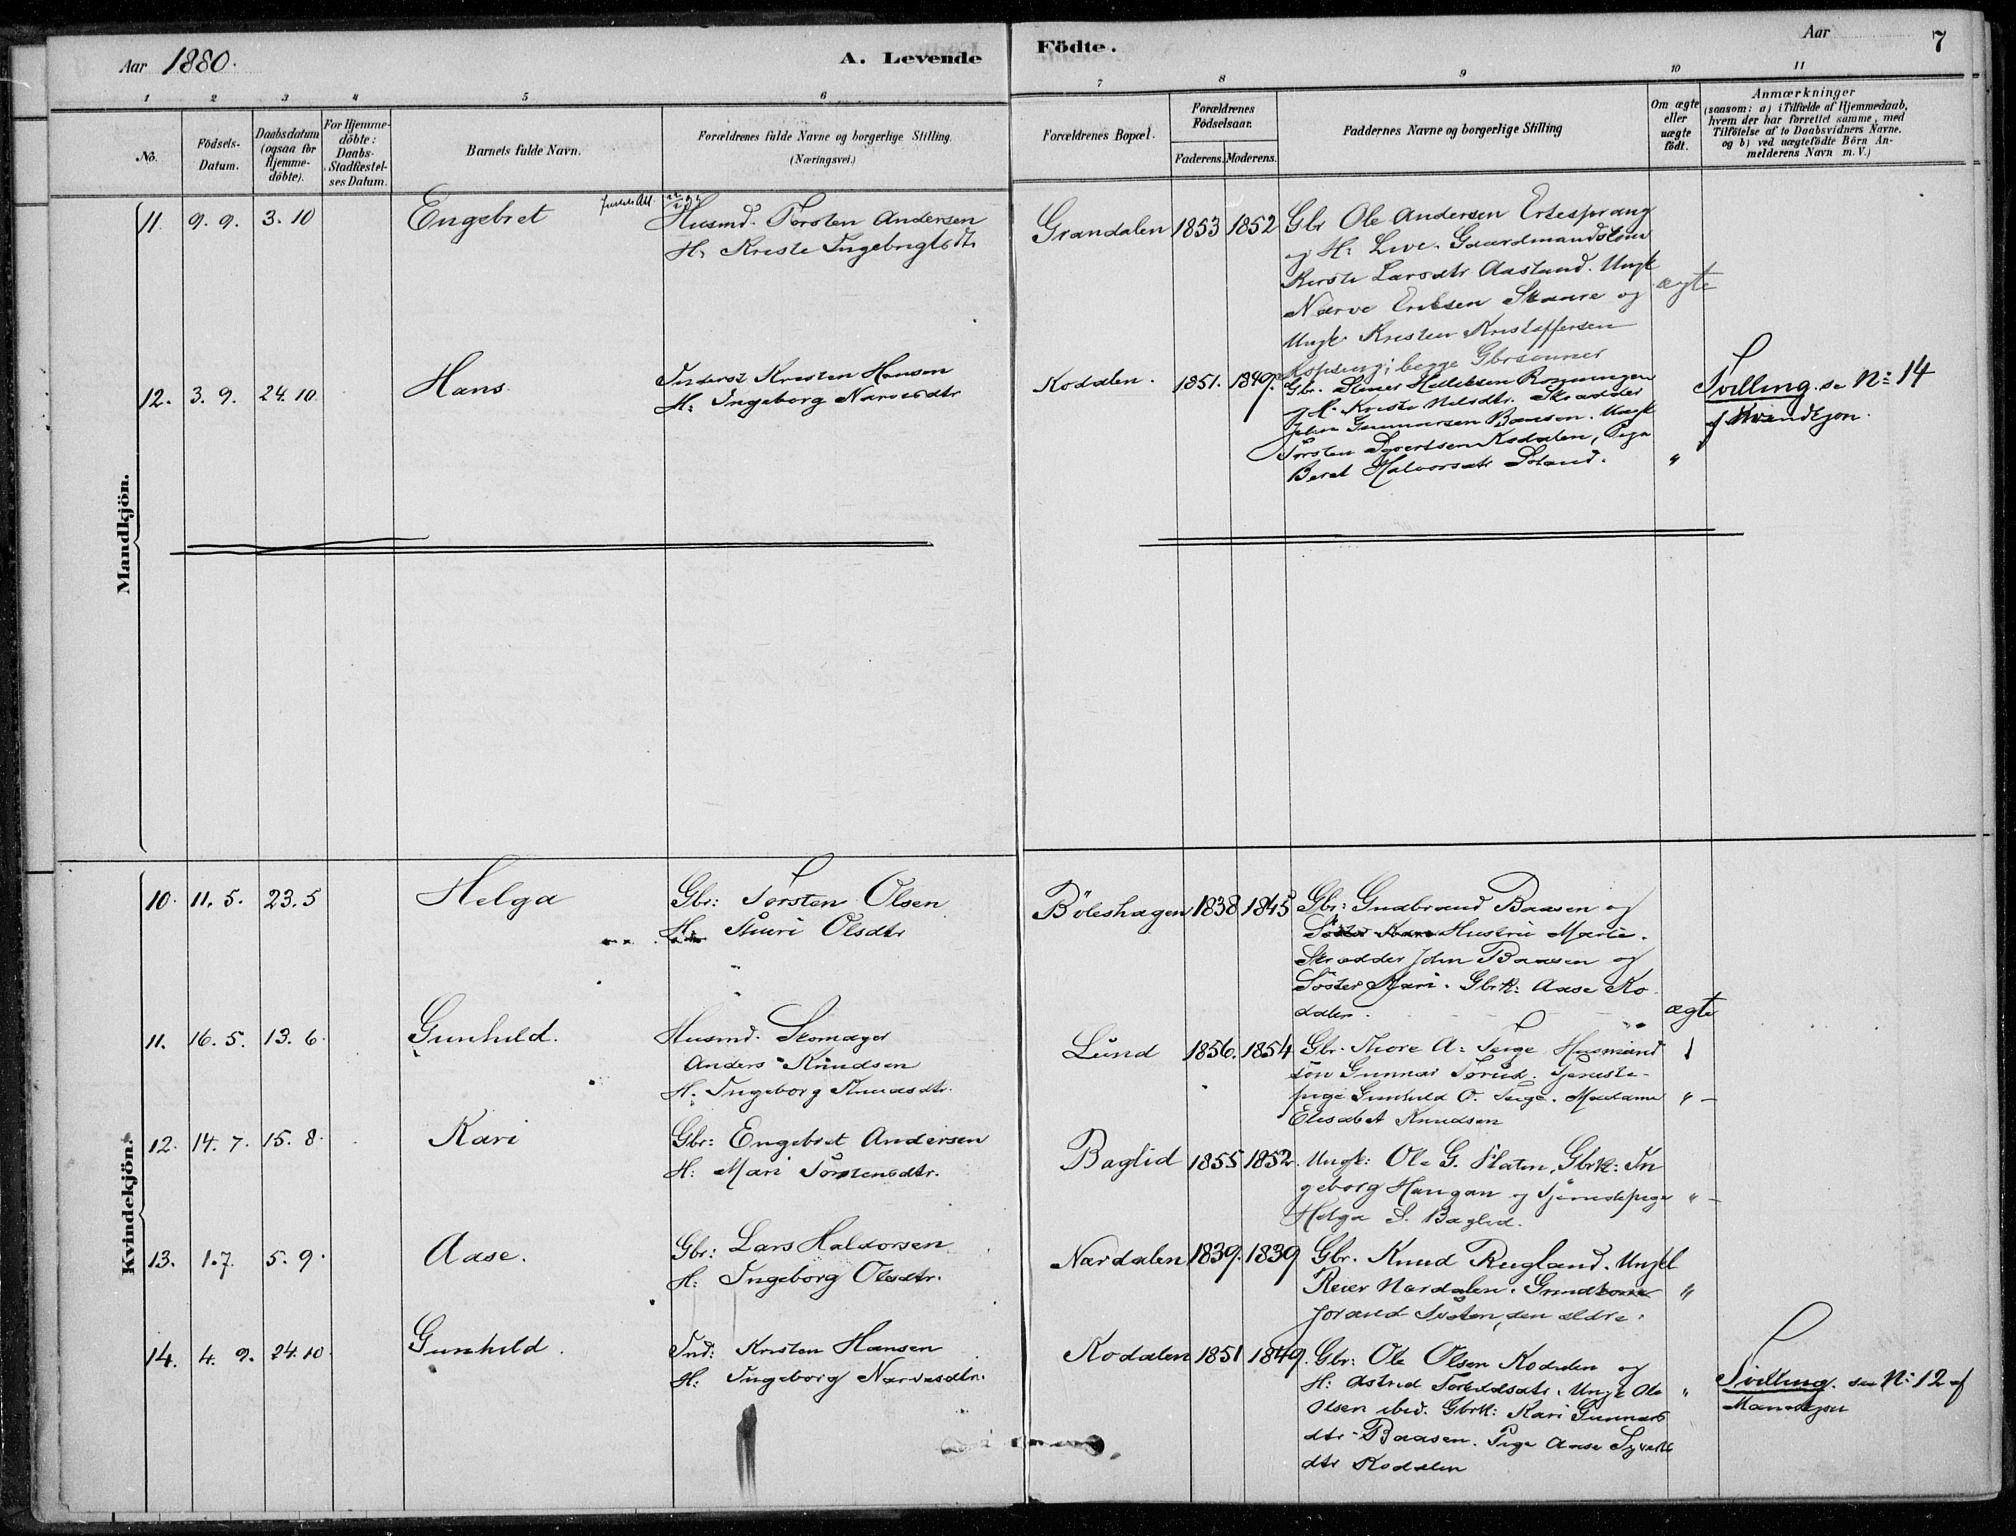 Aar 1880.
A. Levende
Födte.
Aar
7
1 2 3 4 5 6 7 8 9 10 11
No.
Födsels-
Datum.
Daabsdatum
(ogsaa for
Hjemme-
döbte).
For Hjemme-
döbte:
Daabs-
Stadfæstel-
ses Datum.
Barnets fulde Navn.
Forældrenes fulde Navne og borgerlige Stilling.
(Næringsvei.)
Forældrenes Bopæl.
Forældrenes
Födselsaar.
Faderens. Moderens.
Faddernes Navne og borgerlige Stilling
Om ægte
eller
uægte
födt.
Anmærkninger
(saasom: a) i Tilfælde af Hjemmedaab,
hvem der har forrettet samme, med
Tilföielse af to Daabsvidners Navne.
og b) ved uægtefödte Börn An-
melderens Navn m. V.)
Mandkjön.
11. 9. 9. 3. 10 Engebret
Husmd. Torsten Andersen
H. Kriste Ingebrigtsdtr
Grandalen 1853 1852
Gbr Ole Andersen Ertesprang
og H: Live. Gaardmandskone
Kirsti Larsdtr Aasland. Ungk
Narve Eriksen Skaare og
Ungk. Kristen Kristoffersen
Kopseng; begge Gbrsönner
ægte
12. 3. 9. 24. 10 Hans.
Inderst Kristen Hansen
H: Ingeborg Narvesdtr
Kodalen. 1851. 1849.
Gbr. Halleksen
og H. Kriste Nilsdtr. Skrædder
John Gunnarsen Baasen. Ungk
Torsten Syvertsen Kodalen, Pige
Berit Halvorsdtr
"
Tvilling. se No 14
af Kvindkjön.
Kvindekjön.
10. 11. 5. 23. 5 Helga
Gbr: Torsten Olsen
H. Thuri Olsdtr
Böleshagen 1838 1845
Gbr: Gudbrand Baasen og
Hustru Marie.
Skrædder John Baasen og
Söster Mari. Gbrk: Aase Ko-
dalen.
ægte
11. 16. 5. 13. 6. Gunhild.
Husmd. Skomager
Anders Knudsen
H. Ingeborg Knudsdtr.
Lund 1856. 1854
Gbr. Thore A: Teige Husmand
sön Gunnar Torud. Tjeneste-
pige Gunhild O. Teige. Madame
Elisabet Knudsen
" -
12. 14. 7. 15. 8. Kari
Gbr: Engebret Andersen
H: Mari Torstensdtr.
Baglid 1855 1852.
Ungk: Ole G. Flaten, Gbrk: In
geborg Haugan og Tjenestepige
Helga S. Baglid.
" -
13. 1. 7. 5. 9. Aase.
Gbr: Lars Haldorsen
H: Ingeborg Olsdtr.
Nardalen 1839. 1839
Gbr. Knud Rugland. Ungkl
Reier Nardalen.
Jorand den ældre.
"
14. 4. 9. 24. 10 Gunhild.
Ind: Kristen Hansen
H: Ingeborg Narvesdtr.
Kodalen 1851 1849.
Gbr: Ole Olsen Kodalen og
H: Astrid Ungk Ole
Olsen ibid. Gbrk: Kari Gunnars
dtr Baasen. Pige Aase Syverts
dtr Kodalen
"
Tvilling. see No 12 af
Mandkjön